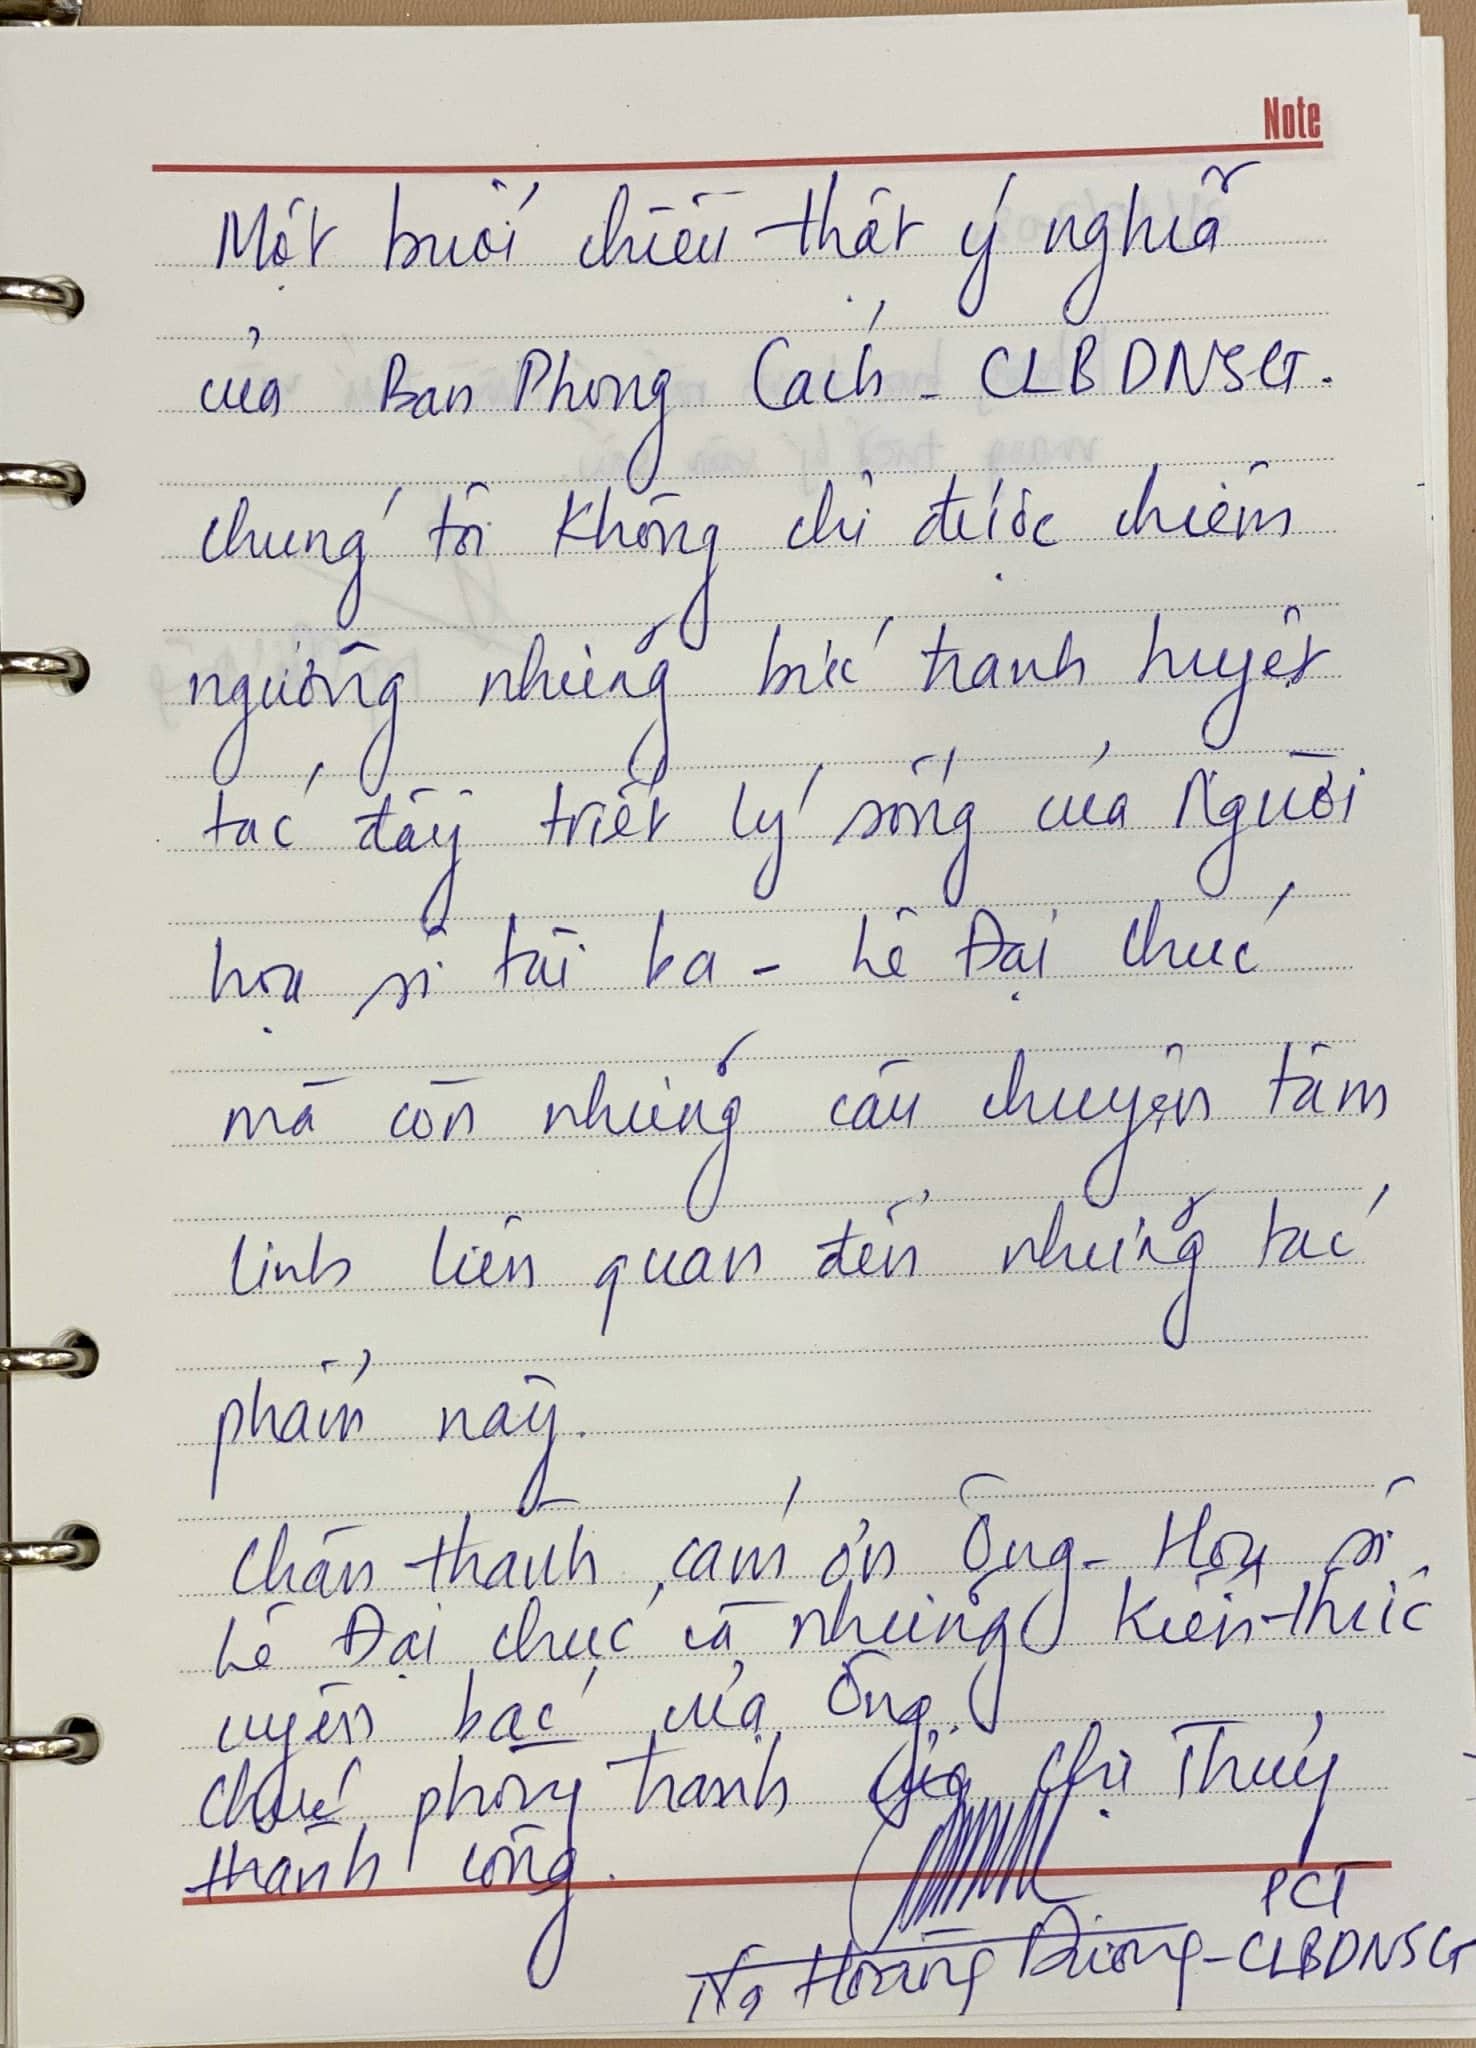 Note
Một buổi chiều thật ý nghĩa
của Ban Phong Cách - CLBDNSG.
chúng tôi không chỉ được chiêm
ngưỡng những bức tranh tuyệt
tác đầy triết lý sống của Người
họa sĩ tài ba - Lê Đại Chúc
mà còn những câu chuyện tâm
linh liên quan đến những tác
phẩm này.
Chân thành cám ơn Ông - Họa sĩ
Lê Đại Chúc và những kiến thức
uyên bác của Ông.
Chúc phòng tranh của Chị Thủy
thành công.
PCT
Hoàng Dương - CLBDNSG